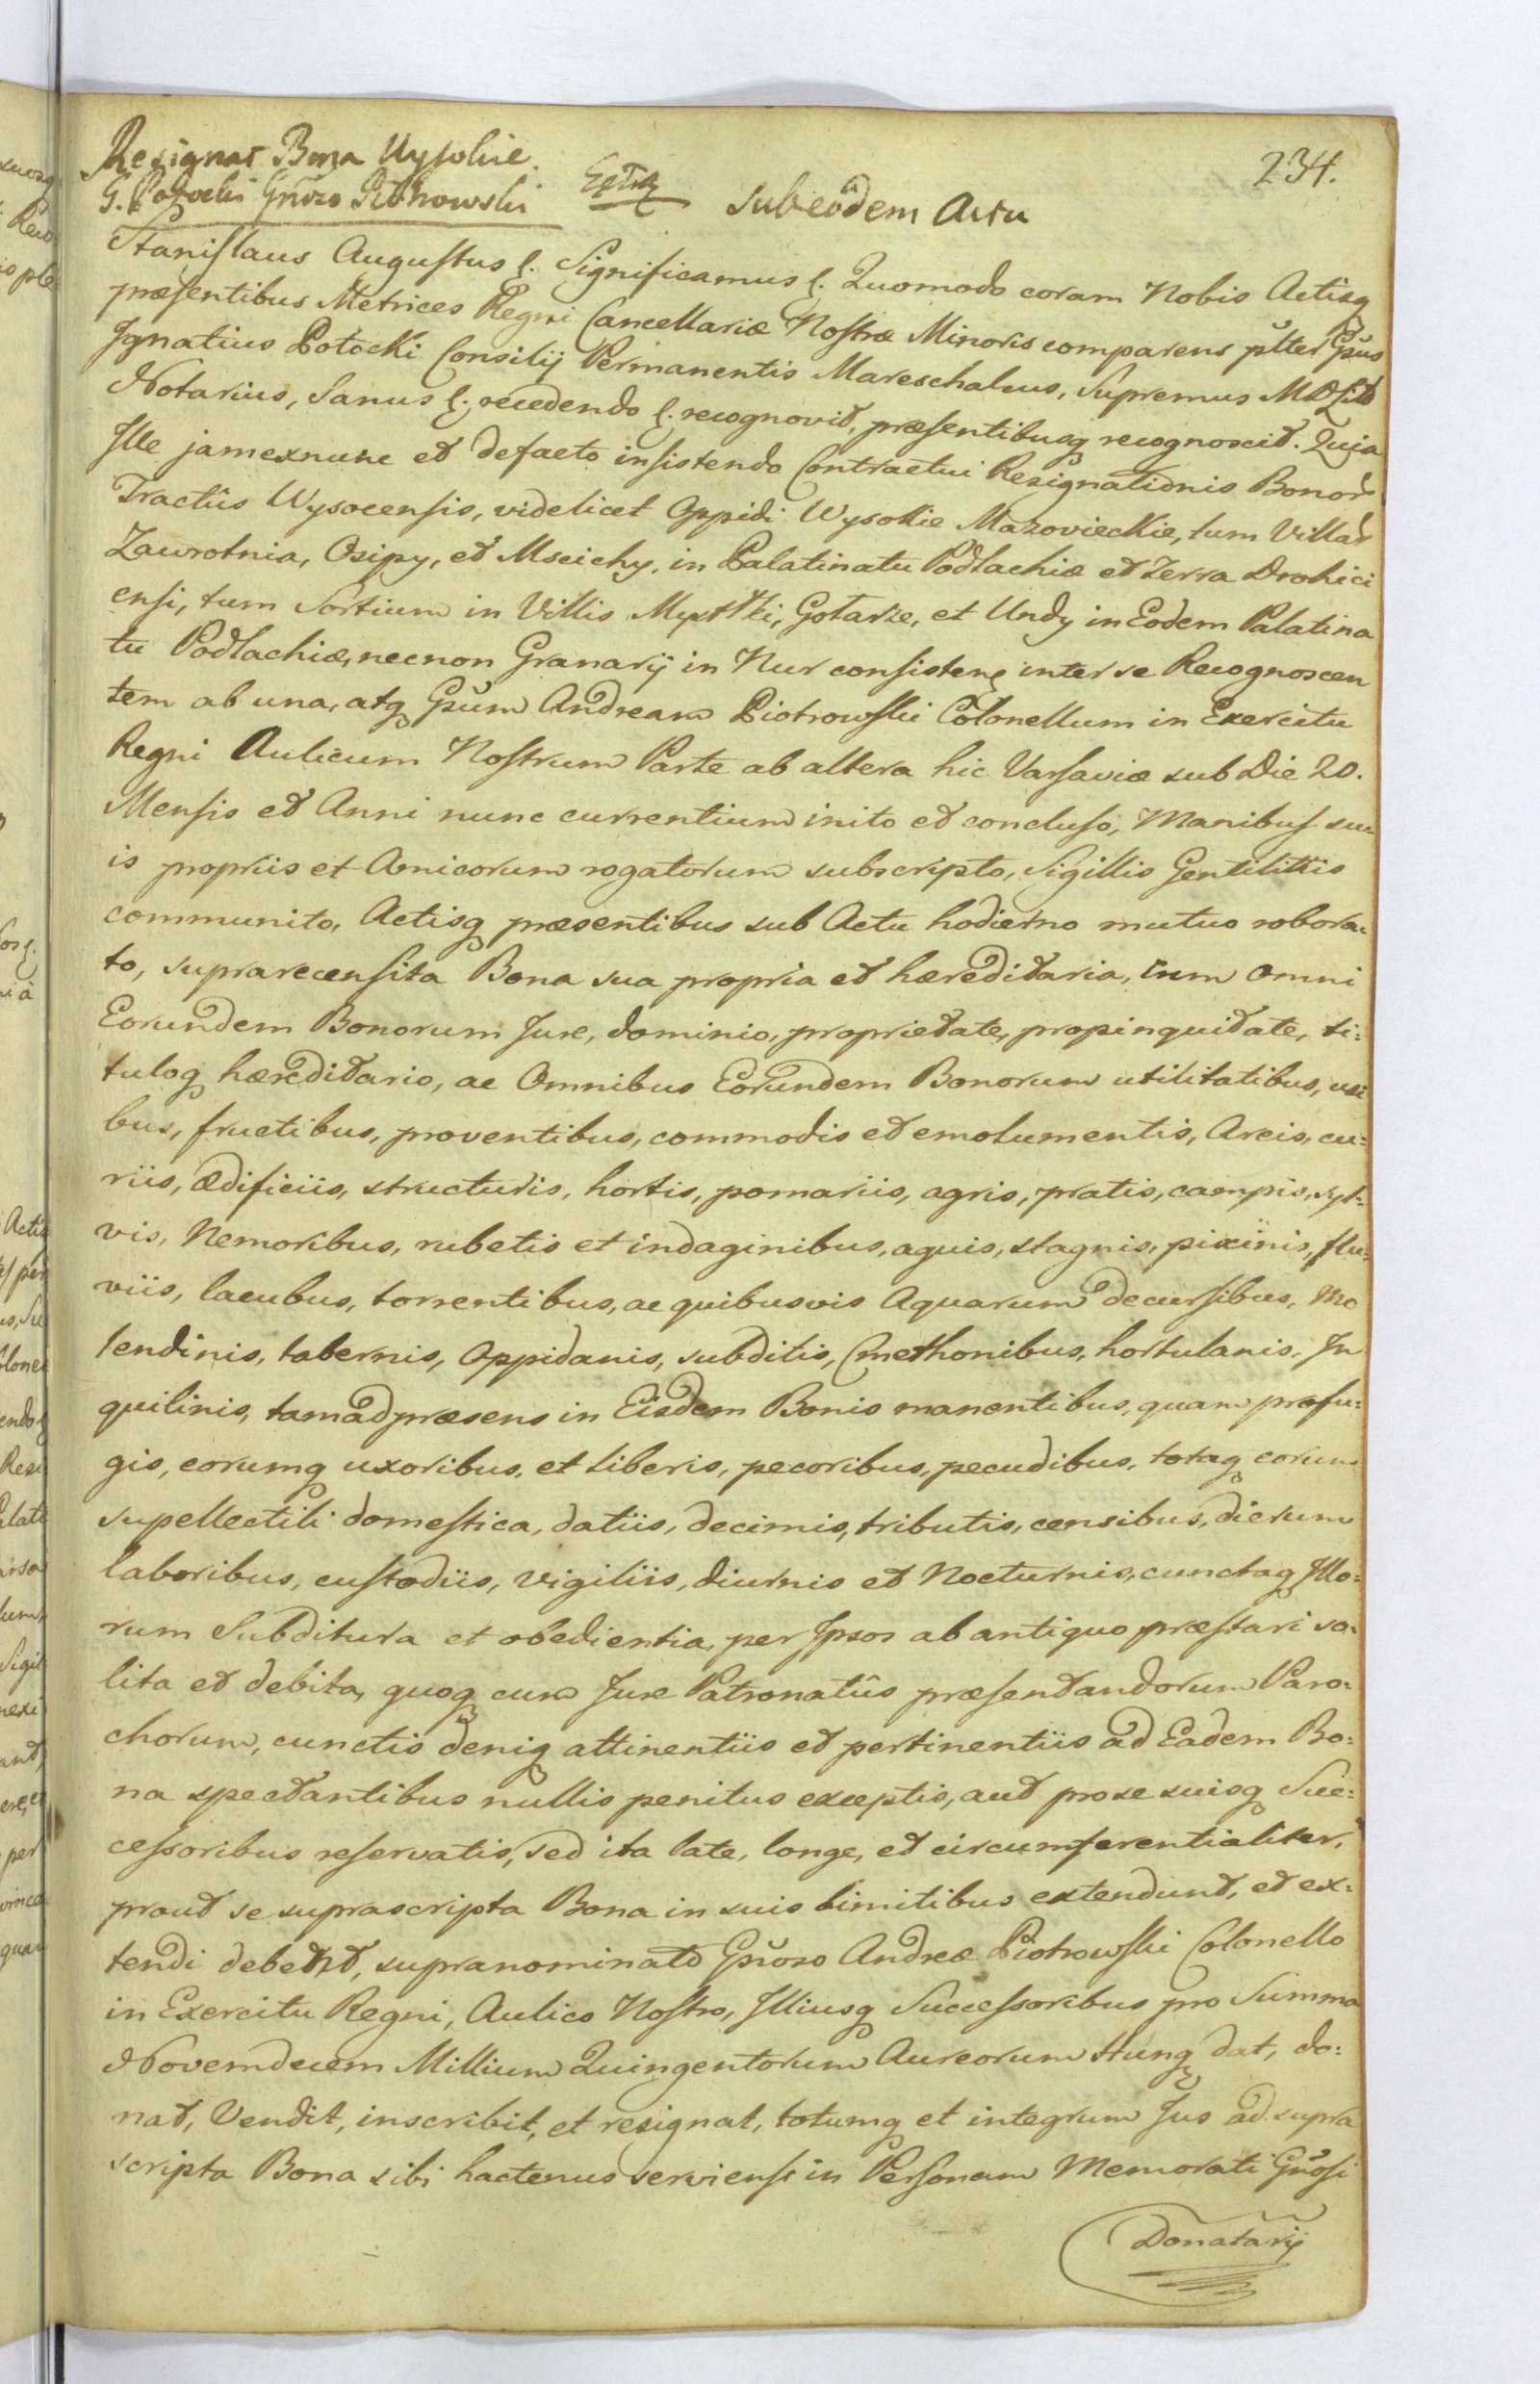 234.
Resignat Bona Wysokie
G. Potocki Gñoso Piotrowski
Extr
sub eodem Actu
Stanislaus Augustus &. Significamus &. Quomodo coram Nobis Actisq
præsentibus Metrices Regni Cancellariæ Nostræ Minoris comparens pltter Gñus
Ignatius Potocki Consilij Permanentis Mareschaleus, Supremus MDLitt
Notarius, Sanus &. recedendo &. recognovit, præsentibusq recognoscit. Quia
Ille jamexnunc et defacto insistendo Contractui Resignationis Bonor
Tractûs Wysocensis, videlicet Oppidi Wysokie Mazovieckie, tum Villar
Zawrotnia, Osipy, et Mscichy, in Palatinatu Podlachiæ et Terra Drohici
ensi, tum Sortium in Villis Mystki, Gołasze, et Undy in Eodem Palatina
tu Podlachiæ, necnon Granarij in Nur consisten inter se Recognoscen
tem ab una, atq Gñum Andream Piotrowski Colonellum in Exercitu
Regni Aulicum Nostrum Parte ab altera hic Varsaviæ sub Die 20.
Mensis et Anni nunc currentium inito et concluso, Manibus su=
is propriis et Amicorum rogatorum subscripto, Sigillis Gentilitiis
communito, Actisq præsentibus sub Actu hodierno mutuo robora=
to, suprarecensita Bona sua propria et hæreditaria, cum omni
Eorundem Bonorum Jure, dominio, proprietate, propinquitate, ti=
tuloq hæreditario, ac Omnibus Eorundem Bonorum utilitatibus, usi
bus, fructibus, proventibus, commodis et emolumentis, Areis, cu=
riis, ædificiis, structuris, hortis, pomariis, agris, pratis, campis, syl=
vis, Nemoribus, rubetis et indaginibus, aquis, stagnis, piscinis, flu=
viis, lacubus, torrentibus, ac quibusvis Aquarum decursibus, Mo
lendinis, tabernis, Oppidanis, subditis, Cmethonibus, hortulanis, In
quilinis, tam ad præsens in Eisdem Bonis manentibus, quam profu=
gis, eorumq uxoribus, et liberis, pecoribus, pecudibus, totaq eorum
supellectili domestica, datiis, decimis, tributis, censibus, dierum
laboribus, custodiis, vigiliis, diurnis et Nocturnis, cunctaq Illo=
rum Subditura et obedientia, per Ipsos ab antiquo præstari so=
lita et debita, quoq cum Jure Patronatûs præsentandorum Paro=
chorum, cunctis deniq attinentiis et pertinentiis ad Eadem Bo=
na spectantibus nullis penitus exceptis, aut pro se suisq Suc=
cessoribus reservatis, sed ita late, longe, et circumferentialiter,
prout se suprascripta Bona in suis limitibus extendunt, et ex=
tendi debent, supranominato Gñoso Andreæ Piotrowski Colonello
in Exercitu Regni, Aulico Nostro, Illiusq Successoribus pro Summa
Novemdecem Millium Quingentorum Aureorum Hung dat, do=
nat, Vendit, inscribit, et resignat, totumq et integrum Jus ad supra
scripta Bona sibi hactenus serviens in Personam Memorati Gñosi
Donatarij